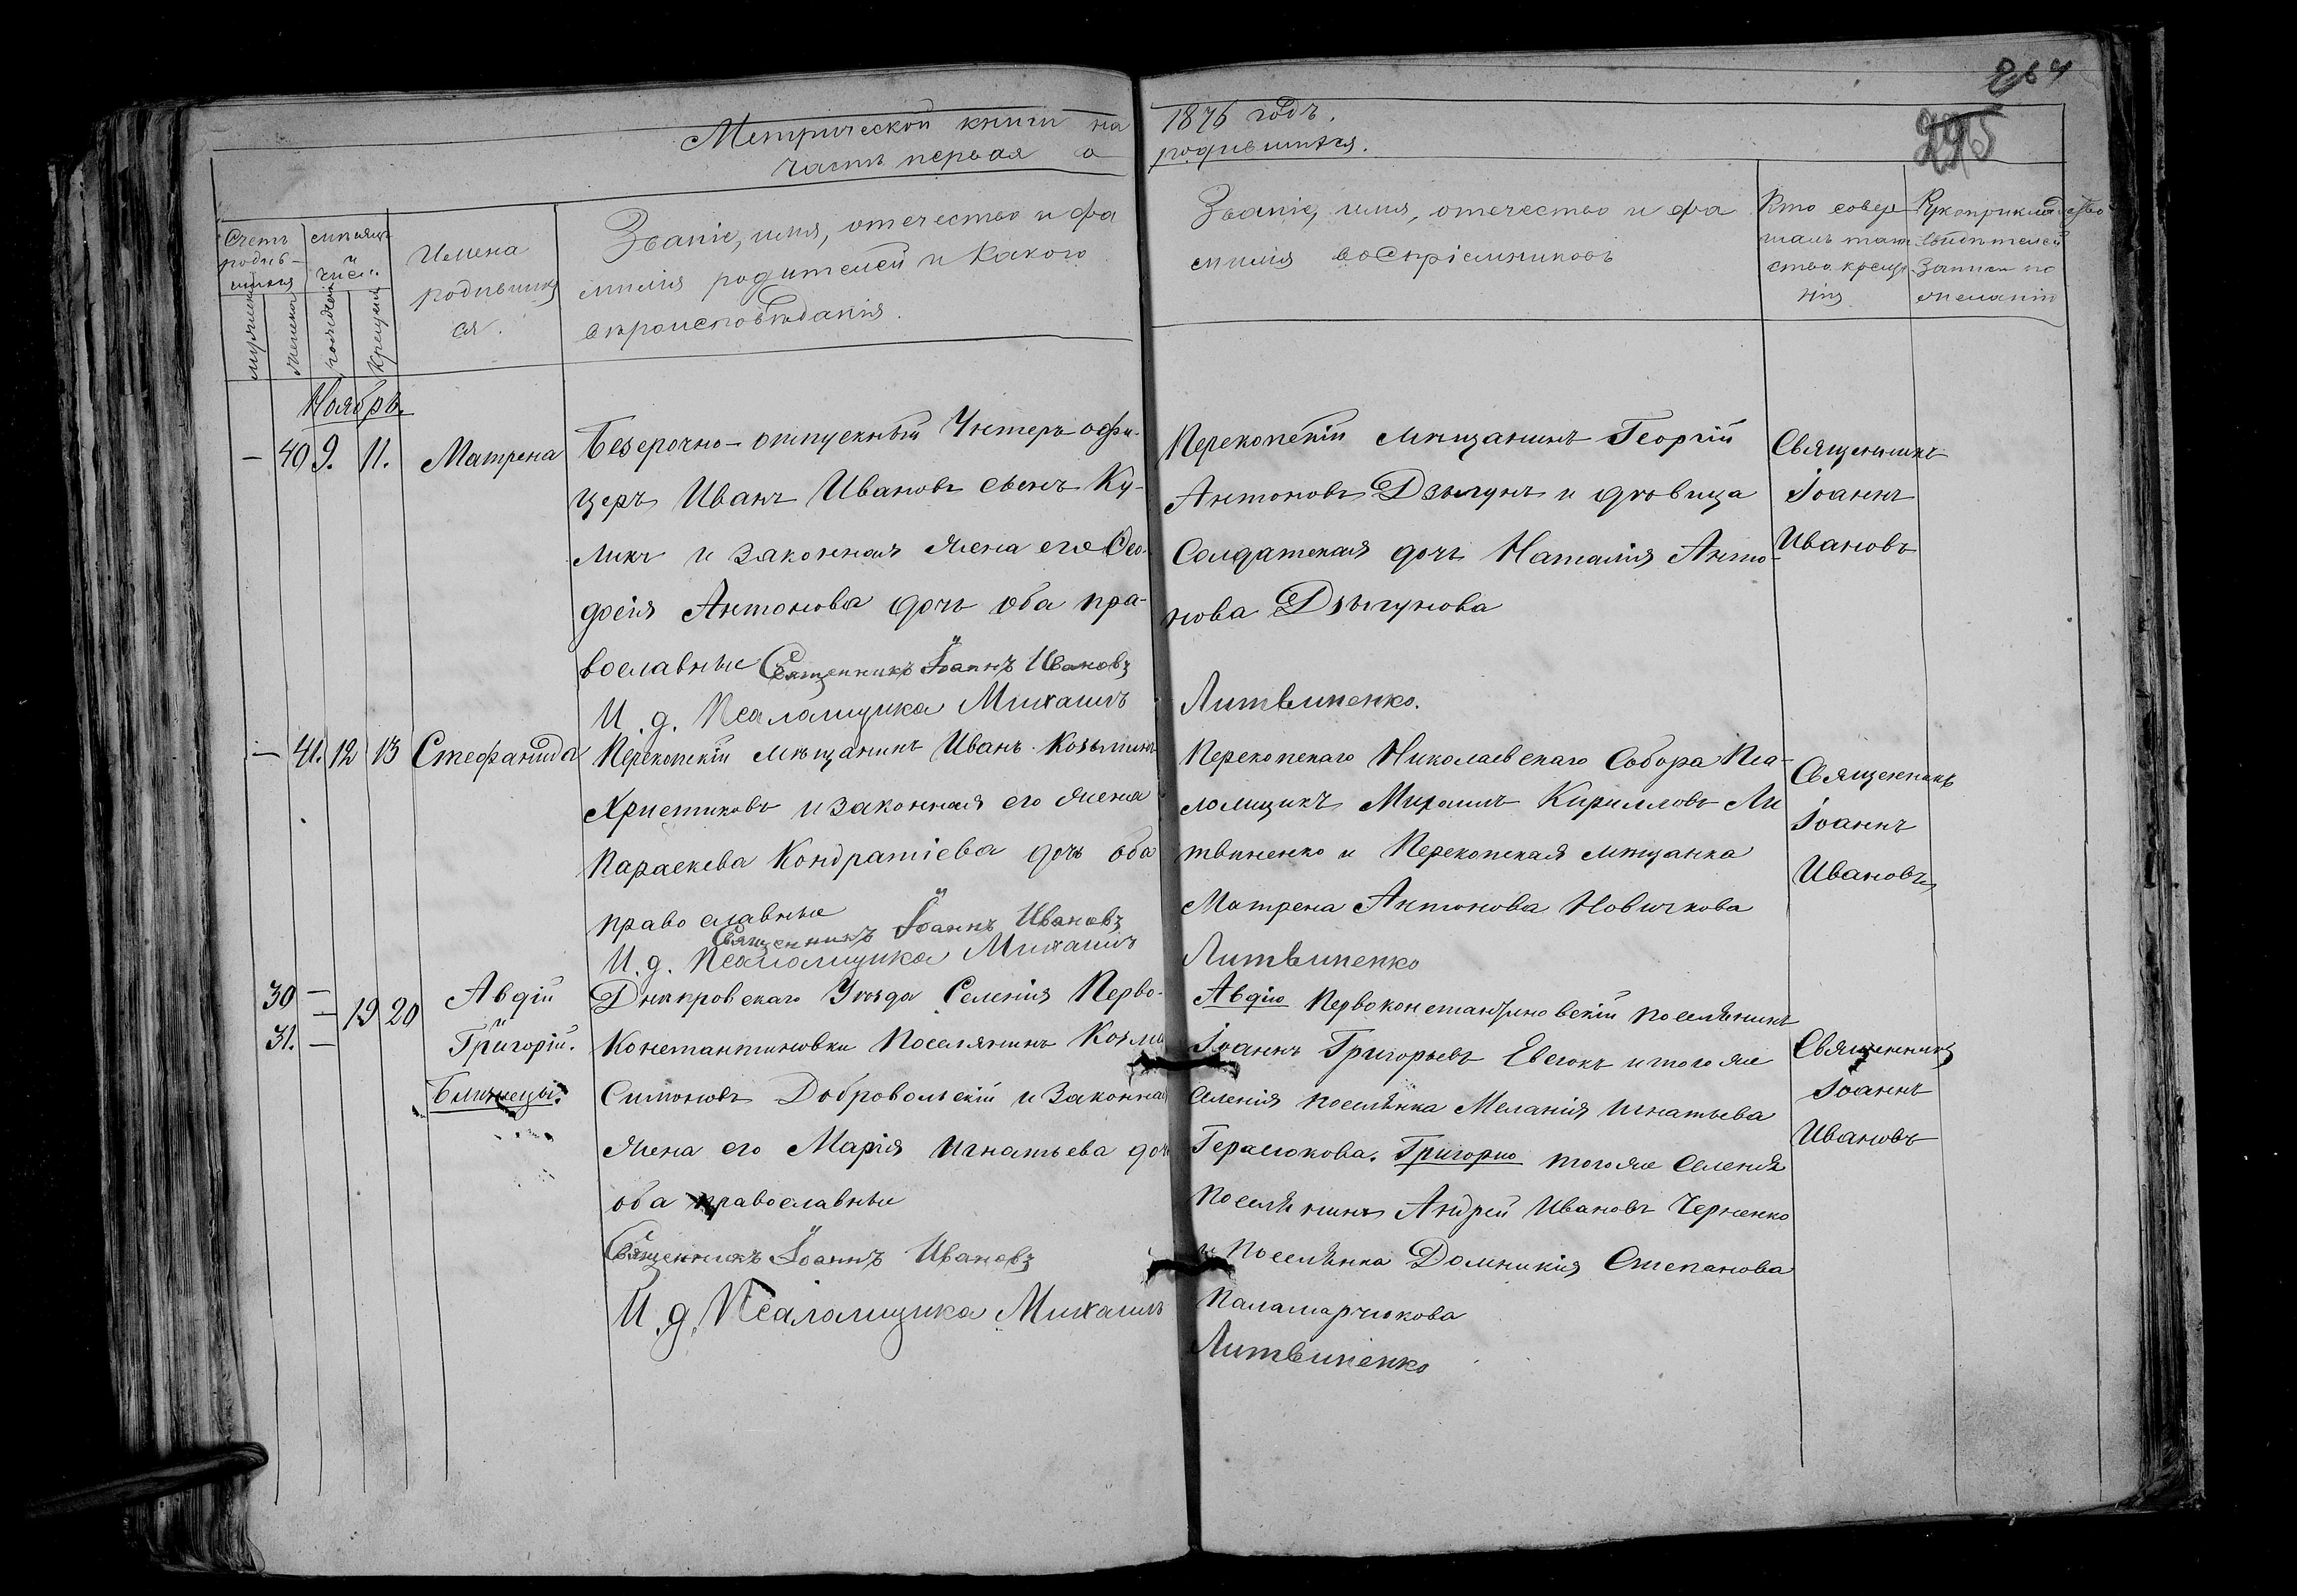 264
295
Метрической книги на 1876 годъ.
часть первая о родившихся.
Счетъ родив-шихся
мужеска
женска
мѣсяцъ и число
рожденія
крещенія
Имена родивших ся.
Званіе, имя, отечество и фа
милія родителей и какого
вѣроисповѣданія.
Званіе, имя, отечество и фа
милія воспріемниковъ
Кто совер
шалъ таин
ство креще
нія
Рукоприкладство
свидѣтелей
записи по
желанію
Ноябрь.
— 40 9. 11. Матрена
Безсрочно-отпускный Унтеръ офи-
церъ Иванъ Ивановъ сынъ Ку-
ликъ и законная жена его Ѳео-
досія Антонова дочь оба пра-
вославные Священникъ Іоаннъ Ивановъ
И. д. Псаломщика Михаилъ Литвиненко.
Перекопскій мѣщанинъ Георгій
Антоновъ Дзыгунъ и дѣвица
Солдатская дочь Наталія Анто-
нова Дзыгунова
Священникъ
Іоаннъ
Ивановъ
— 41. 12 13 Стефанида
Перекопскій мѣщанинъ Иванъ Козьминъ
Христиковъ и законная его жена
Параскева Кондратіева дочь оба
православные
Священникъ Іоаннъ Ивановъ
И. д. Псаломщика Михаилъ Литвиненко
Перекопскаго Николаевскаго Собора Пса-
ломщикъ Михаилъ Кирилловъ Ли
твиненко и Перекопская мѣщанка
Матрена Антонова Новичкова
Священникъ
Іоаннъ
Ивановъ
30 — 19 20 Авдій
31. — Григорій.
Близнецы.
Днѣпровскаго Уѣзда Селенія Перво-
Константиновки Поселянинъ Козма
Симоновъ Добровольскій и Законная
жена его Марія Игнатьева дочь
оба православные
Священникъ Іоаннъ Ивановъ
И. д. Псаломщика Михаилъ Литвиненко
Авдію Первоконстантиновскій поселянинъ
Іоаннъ Григорьевъ Евсюкъ и того же
селенія поселянка Меланія Игнатьева
Герасюкова. Григорію того же селенія
Поселянинъ Андрей Ивановъ Черненко
и Поселянка Домникія Степанова
Паламарчюкова
Священникъ
Іоаннъ
Ивановъ